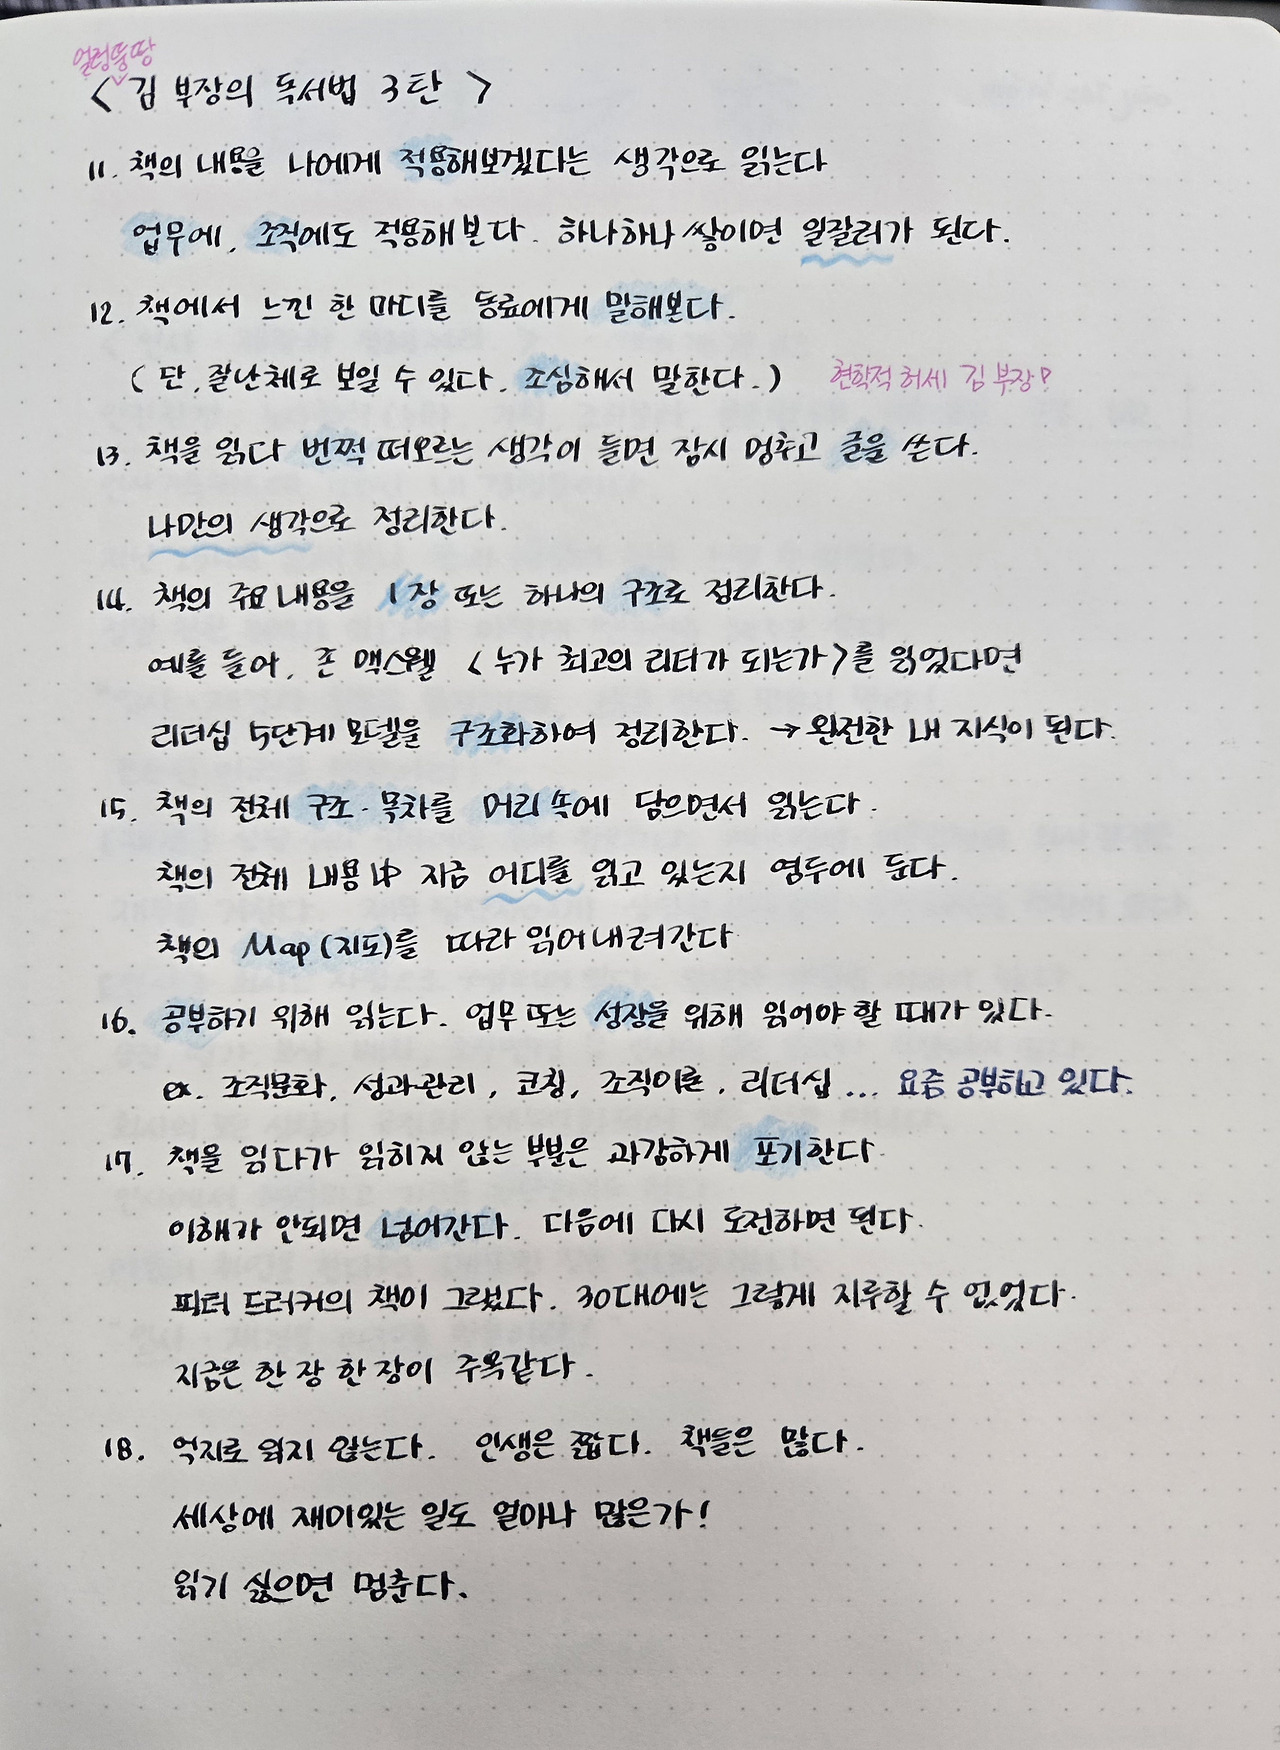 얼렁뚱땅
< 김 부장의 독서법 3탄 >
11. 책의 내용을 나에게 적용해보겠다는 생각으로 읽는다
업무에, 조직에도 적용해본다. 하나하나 쌓이면 일잘러가 된다.
12. 책에서 느낀 한 마디를 동료에게 말해본다.
( 단, 잘난체로 보일 수 있다. 조심해서 말한다. ) 현학적 허세 김 부장?
13. 책을 읽다 번쩍 떠오르는 생각이 들면 잠시 멈추고 글을 쓴다.
나만의 생각으로 정리한다.
14. 책의 주요 내용을 1장 또는 하나의 구조로 정리한다.
예를 들어, 존 맥스웰 <누가 최고의 리더가 되는가>를 읽었다면
리더십 5단계 모델을 구조화하여 정리한다. → 완전한 내 지식이 된다.
15. 책의 전체 구조·목차를 머리 속에 담으면서 읽는다.
책의 전체 내용 中 지금 어디를 읽고 있는지 염두에 둔다.
책의 Map (지도)를 따라 읽어내려간다
16. 공부하기 위해 읽는다. 업무 또는 성장을 위해 읽어야 할 때가 있다.
ex. 조직문화, 성과관리, 코칭, 조직이론, 리더십 ... 요즘 공부하고 있다.
17. 책을 읽다가 읽히지 않는 부분은 과감하게 포기한다.
이해가 안되면 넘어간다. 다음에 다시 도전하면 된다.
피터 드러커의 책이 그랬다. 30대에는 그렇게 지루할 수 없었다.
지금은 한 장 한 장이 주옥같다.
18. 억지로 읽지 않는다. 인생은 짧다. 책들은 많다.
세상에 재미있는 일도 얼마나 많은가!
읽기 싫으면 멈춘다.